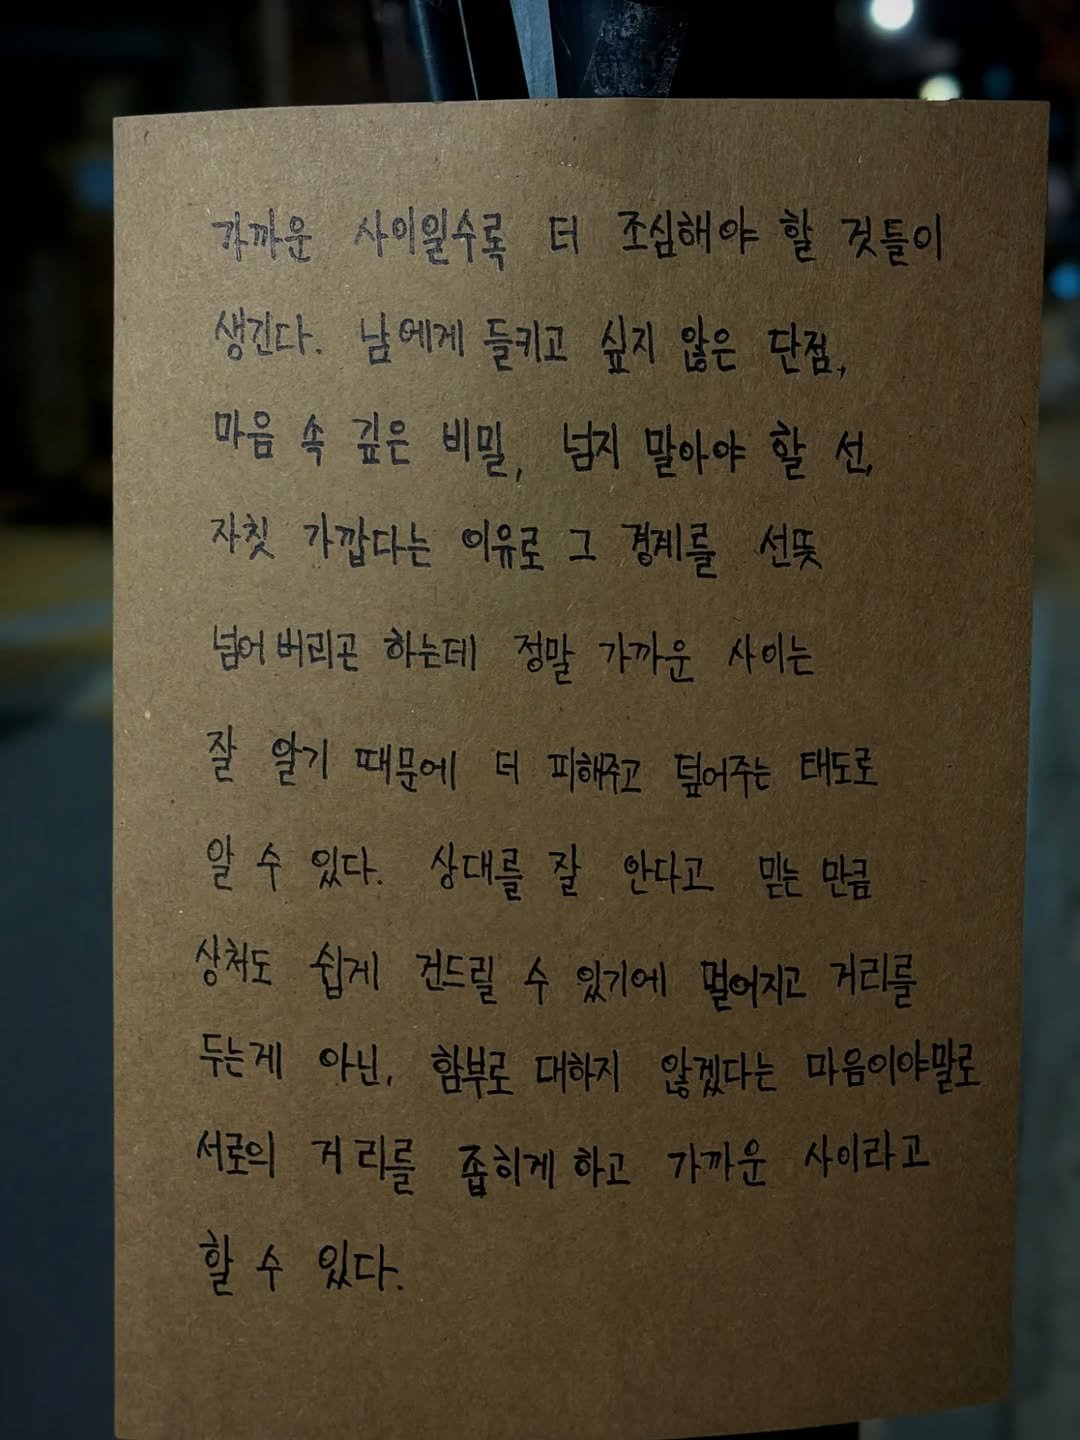 가까운 사이일수록 더 조심해야 할 것들이
생긴다. 남에게 들키고 싶지 않은 단점,
마음 속 깊은 비밀, 넘지 말아야 할 선,
자칫 가깝다는 이유로 그 경계를 선뜻
넘어버리곤 하는데 정말 가까운 사이는
잘 알기 때문에 더 피해주고 덮어주는 태도로
알 수 있다. 상대를 잘 안다고 믿는 만큼
상처도 쉽게 건드릴 수 있기에 멀어지고 거리를
두는게 아닌, 함부로 대하지 않겠다는 마음이야말로
서로의 거리를 좁히게 하고 가까운 사이라고
할 수 있다.